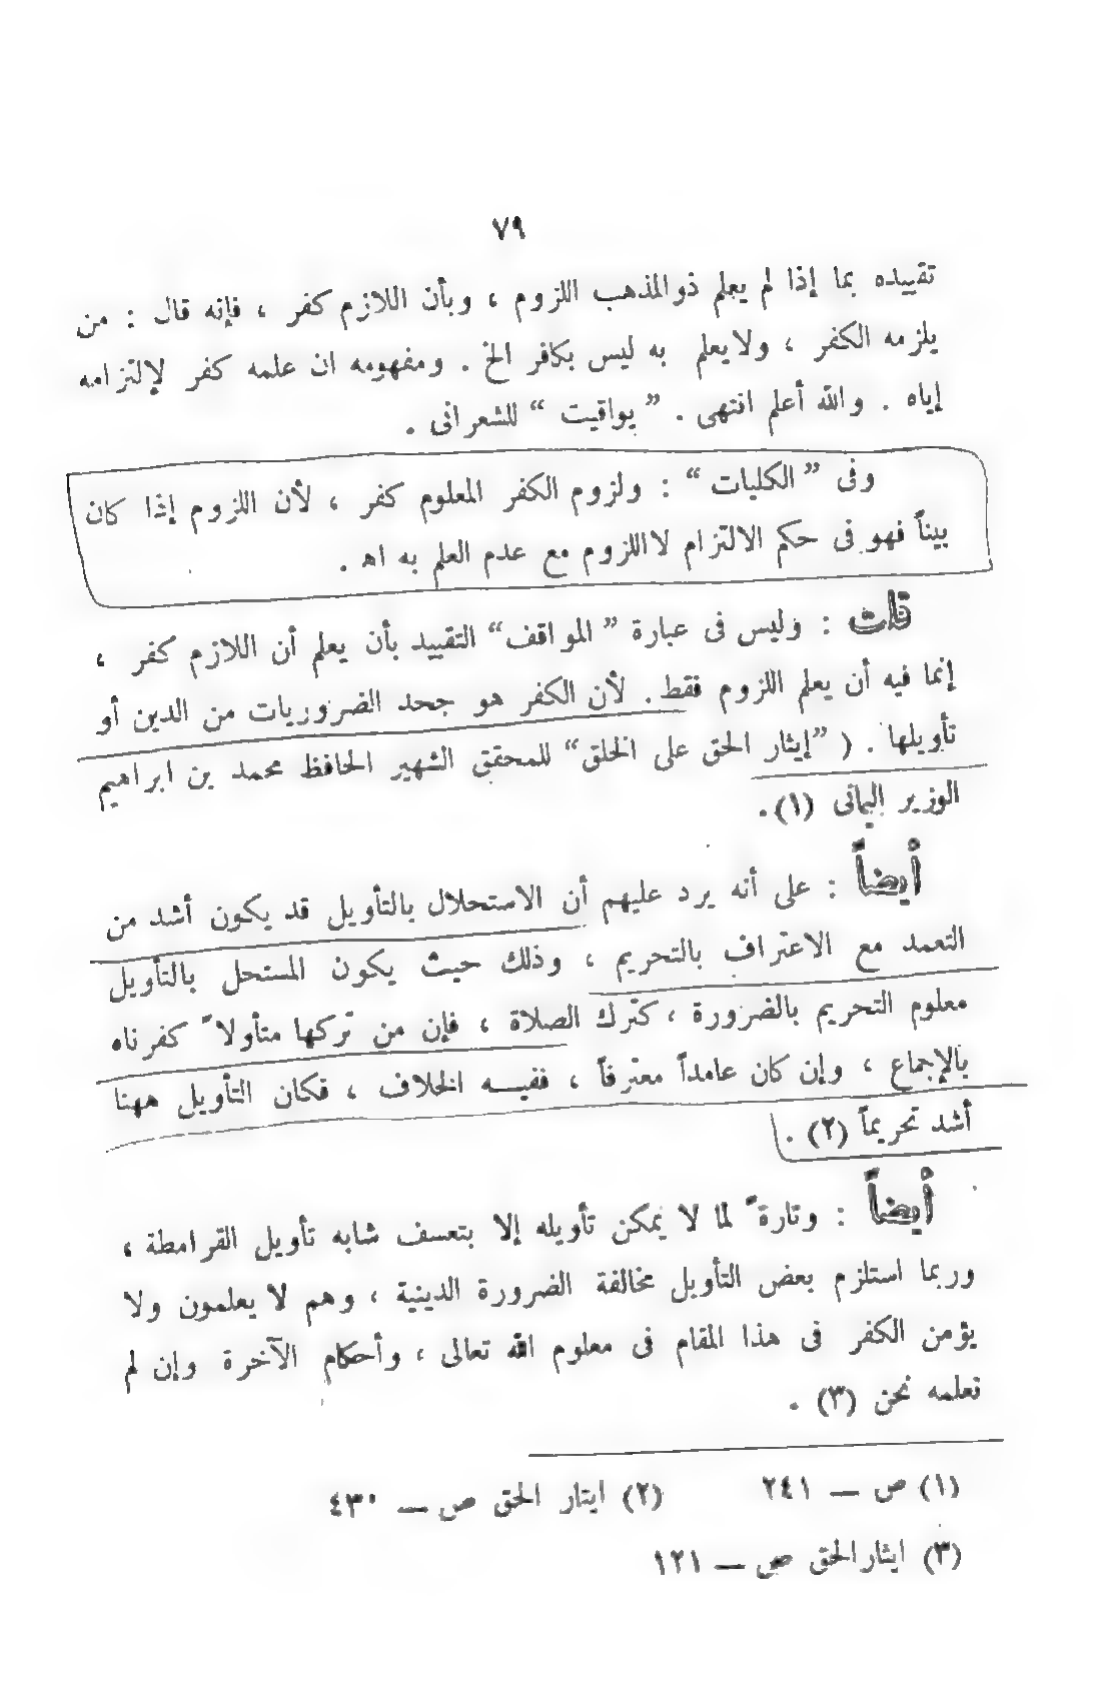 ٧٩
تقييده بما إذا لم يعلم ذوالمذهب اللزوم ، وبأن اللازم كفر ، فإنه قال : من
يلزمه الكفر ، ولايعلم به ليس بكافر الخ . ومفهومه ان علمه كفر لإلتزامه
إياه . والله أعلم انتهى . ” يواقيت “ للشعرانى .
وفى ” الكليات “ : ولزوم الكفر المعلوم كفر ، لأن اللزوم إذا كان
بيناً فهو فى حكم الالتزام لااللزوم مع عدم العلم به اھ .
قلت : وليس فى عبارة ” المواقف“ التقييد بأن يعلم أن اللازم كفر ،
إنما فيه أن يعلم اللزوم فقط . لأن الكفر هو جحد الضروريات من الدين أو
تأويلها . ( ”إيثار الحق على الخلق“ للمحقق الشهير الحافظ محمد بن ابراهيم
الوزير اليمانى (١).
أيضاً : على أنه يرد عليهم أن الاستحلال بالتأويل قد يكون أشد من
التعمد مع الاعتراف بالتحريم ، وذلك حيث يكون المستحل بالتأويل
معلوم التحريم بالضرورة ، كترك الصلاة ، فإن من تركها متأولاً كفرناه
بالإجماع ، وإن كان عامداً معترفاً ، ففيـــه الخلاف ، فكان التأويل ههنا
أشد تحريماً (٢) .
أيضاً : وتارةً لما لا يمكن تأويله إلا بتعسف شابه تأويل القرامطة ،
وربما استلزم بعض التأويل مخالفة الضرورة الدينية ، وهم لا يعلمون ولا
يؤمن الكفر فى هذا المقام فى معلوم الله تعالى ، وأحكام الآخرة وإن لم
نعلمه نحن (٣) .
(١) ص — ٢٤١ (٢) ايثار الحق ص — ٤٣٠
(٣) ايثارالحق ص — ١٢١